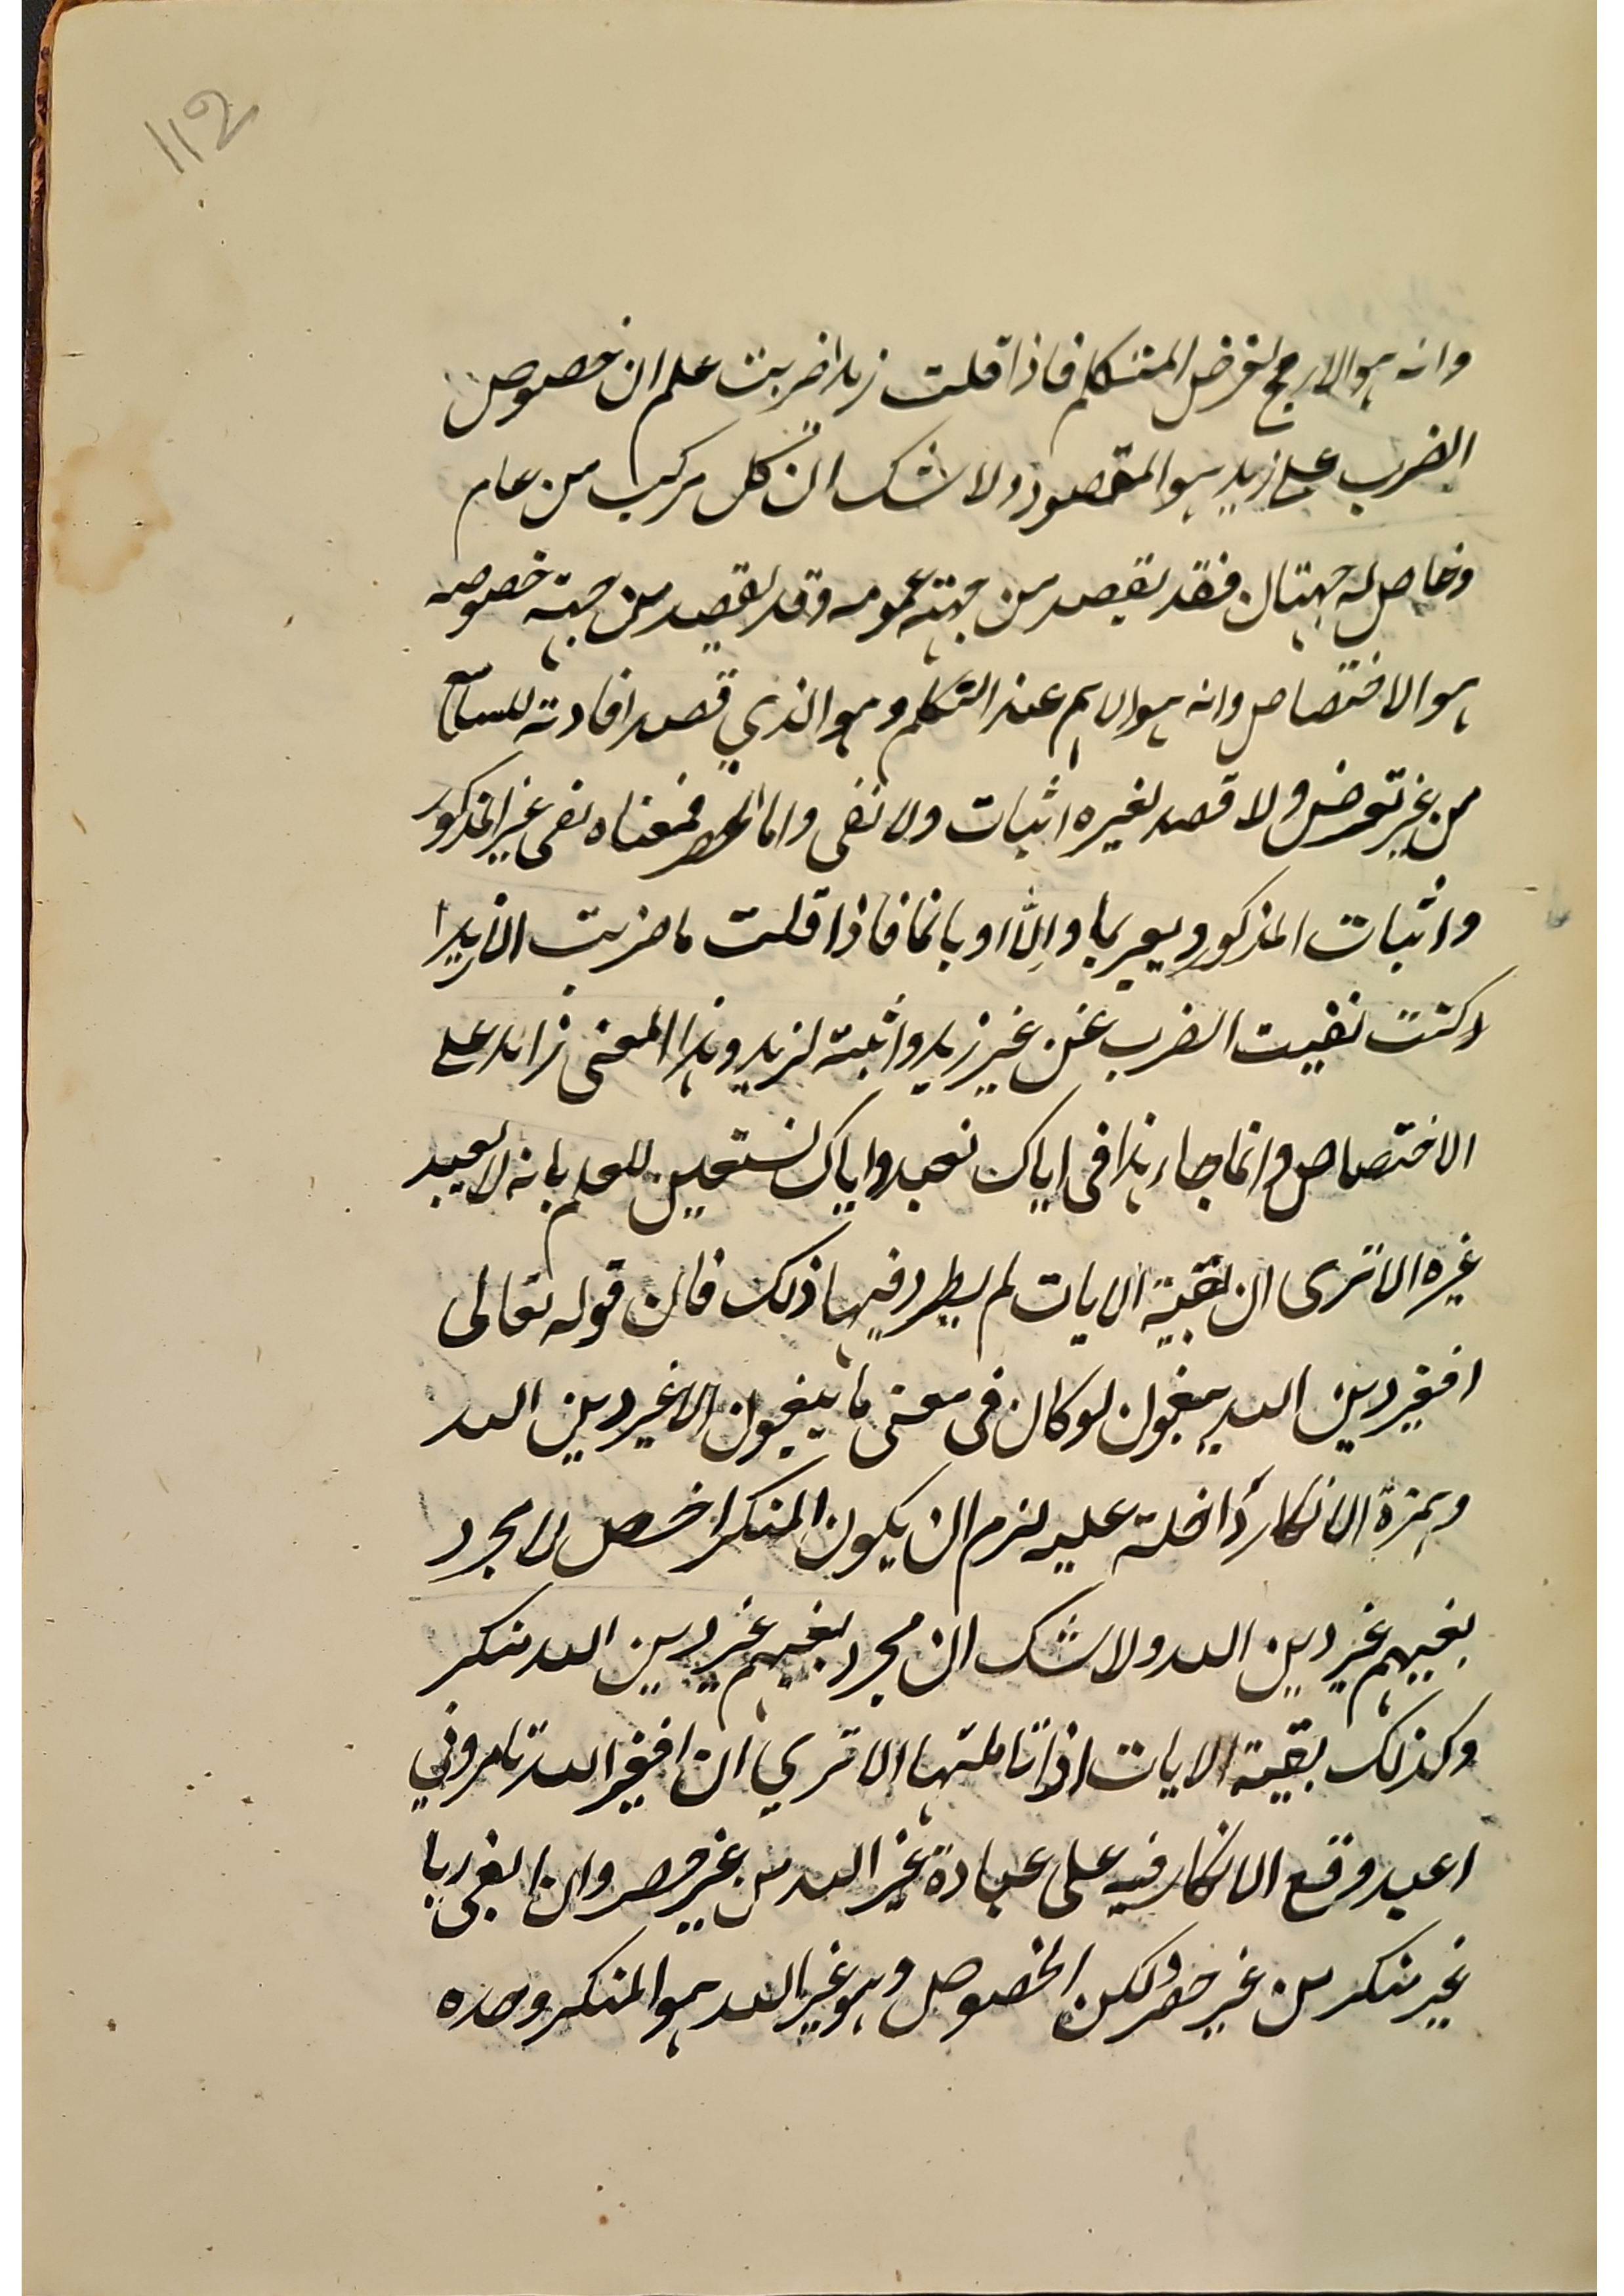 112
وانه هو الارجح لغرض المتكلم فاذا قلت زيدا ضربت علم ان خصوص
الضرب على زيد هو المقصود ولا شك ان كل مركب من عام
وخاص له جهتان فقد يقصد من جهة عمومه وقد يقصد من جهة خصوصه
هو الاختصاص وانه هو الاهم عند المتكلم وهو الذي قصد افادته للسامع
من غير تعرض ولا قصد لغيره اثبات ولا نفى واما الحصر فمعناه نفى غير المذكور
واثبات المذكور ويعبر بما والا او بانما فاذا قلت ما ضربت الا زيدا
كنت نفيت الضرب عن غير زيد واثبته لزيد وهذا المعنى زائد على
الاختصاص وانما جاء هذا فى اياك نعبد واياك نستعين للعلم بانه لا يعبد
غيره الا ترى ان بقية الايات لم يطرد فيها ذلك فان قوله تعالى
افغير دين الله يبغون لو كان فى معنى ما يبغون الا غير دين الله
وهمزة الانكار داخلة عليه لزم ان يكون المنكر الحصر لا مجرد
بغيهم غير دين الله ولا شك ان مجرد بغيهم غير دين الله منكر
وكذلك بقية الايات اذا تاملتها الا تري ان افغير الله تامروني
اعبد وقع الانكار فيه على عبادة غير الله من غير حصر وان ابغى ربا
غير منكر من غير حصر ولكن الخصوص وهو غير الله هو المنكر وحده